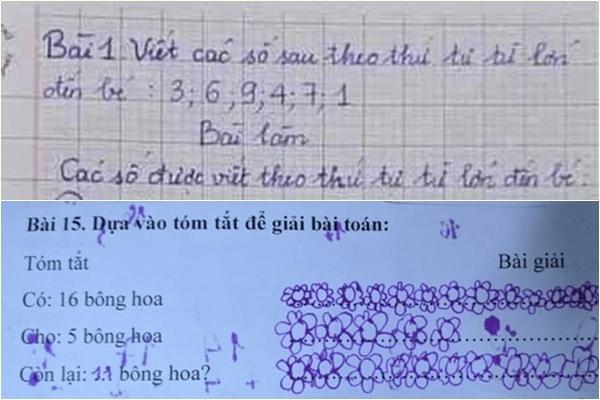 Bài 1 Viết các số sau theo thứ tự từ lớn
đến bé : 3; 6; 9; 4; 7; 1
Bài làm
Các số được viết theo thứ tự từ lớn đến bé:
Bài 15. Dựa vào tóm tắt để giải bài toán:
Tóm tắt
Bài giải
Có: 16 bông hoa
Cho: 5 bông hoa
Còn lại: 11 bông hoa?